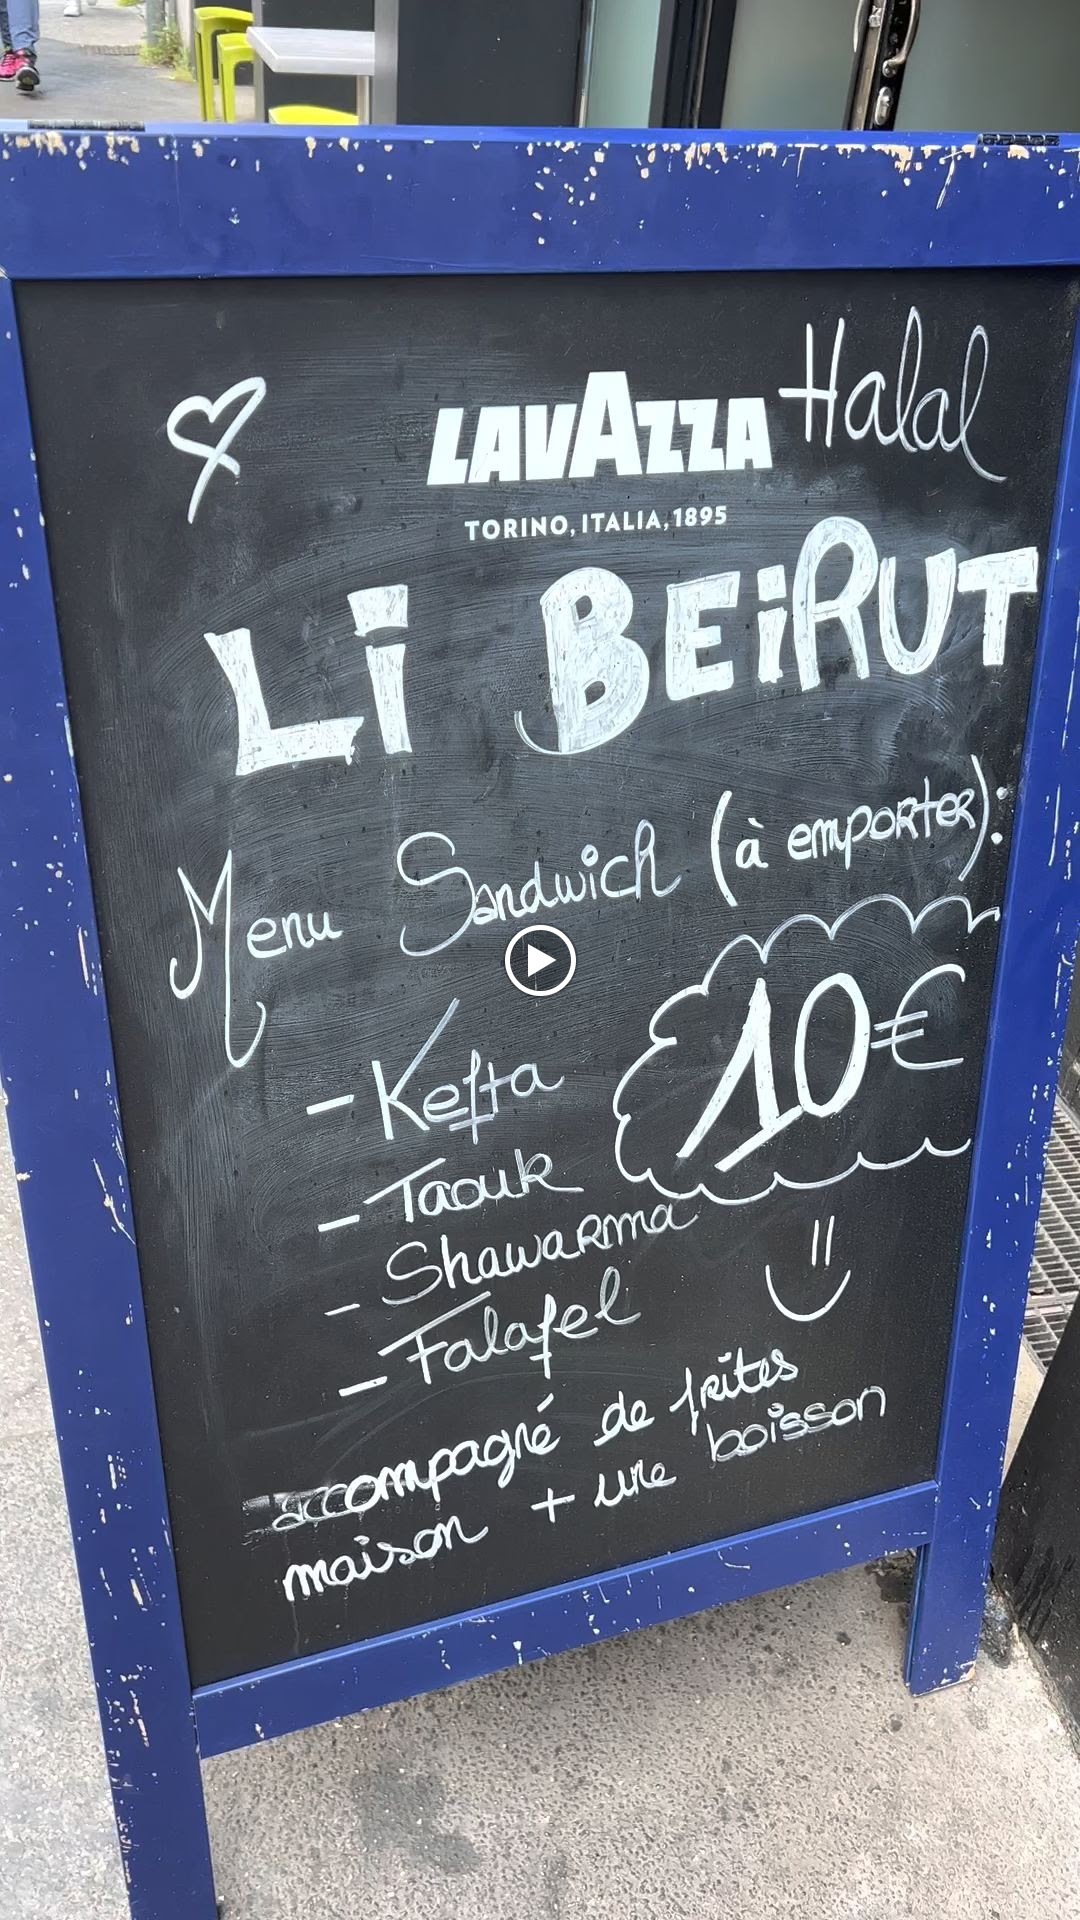 Halal
LAVAZZA
TORINO, ITALIA, 1895
Li BEiRUT
Menu Sandwich (à emporter):
- Kefta
10€
- Taouk
- Shawarma
- Falafel
accompagné de frites
maison + une boisson